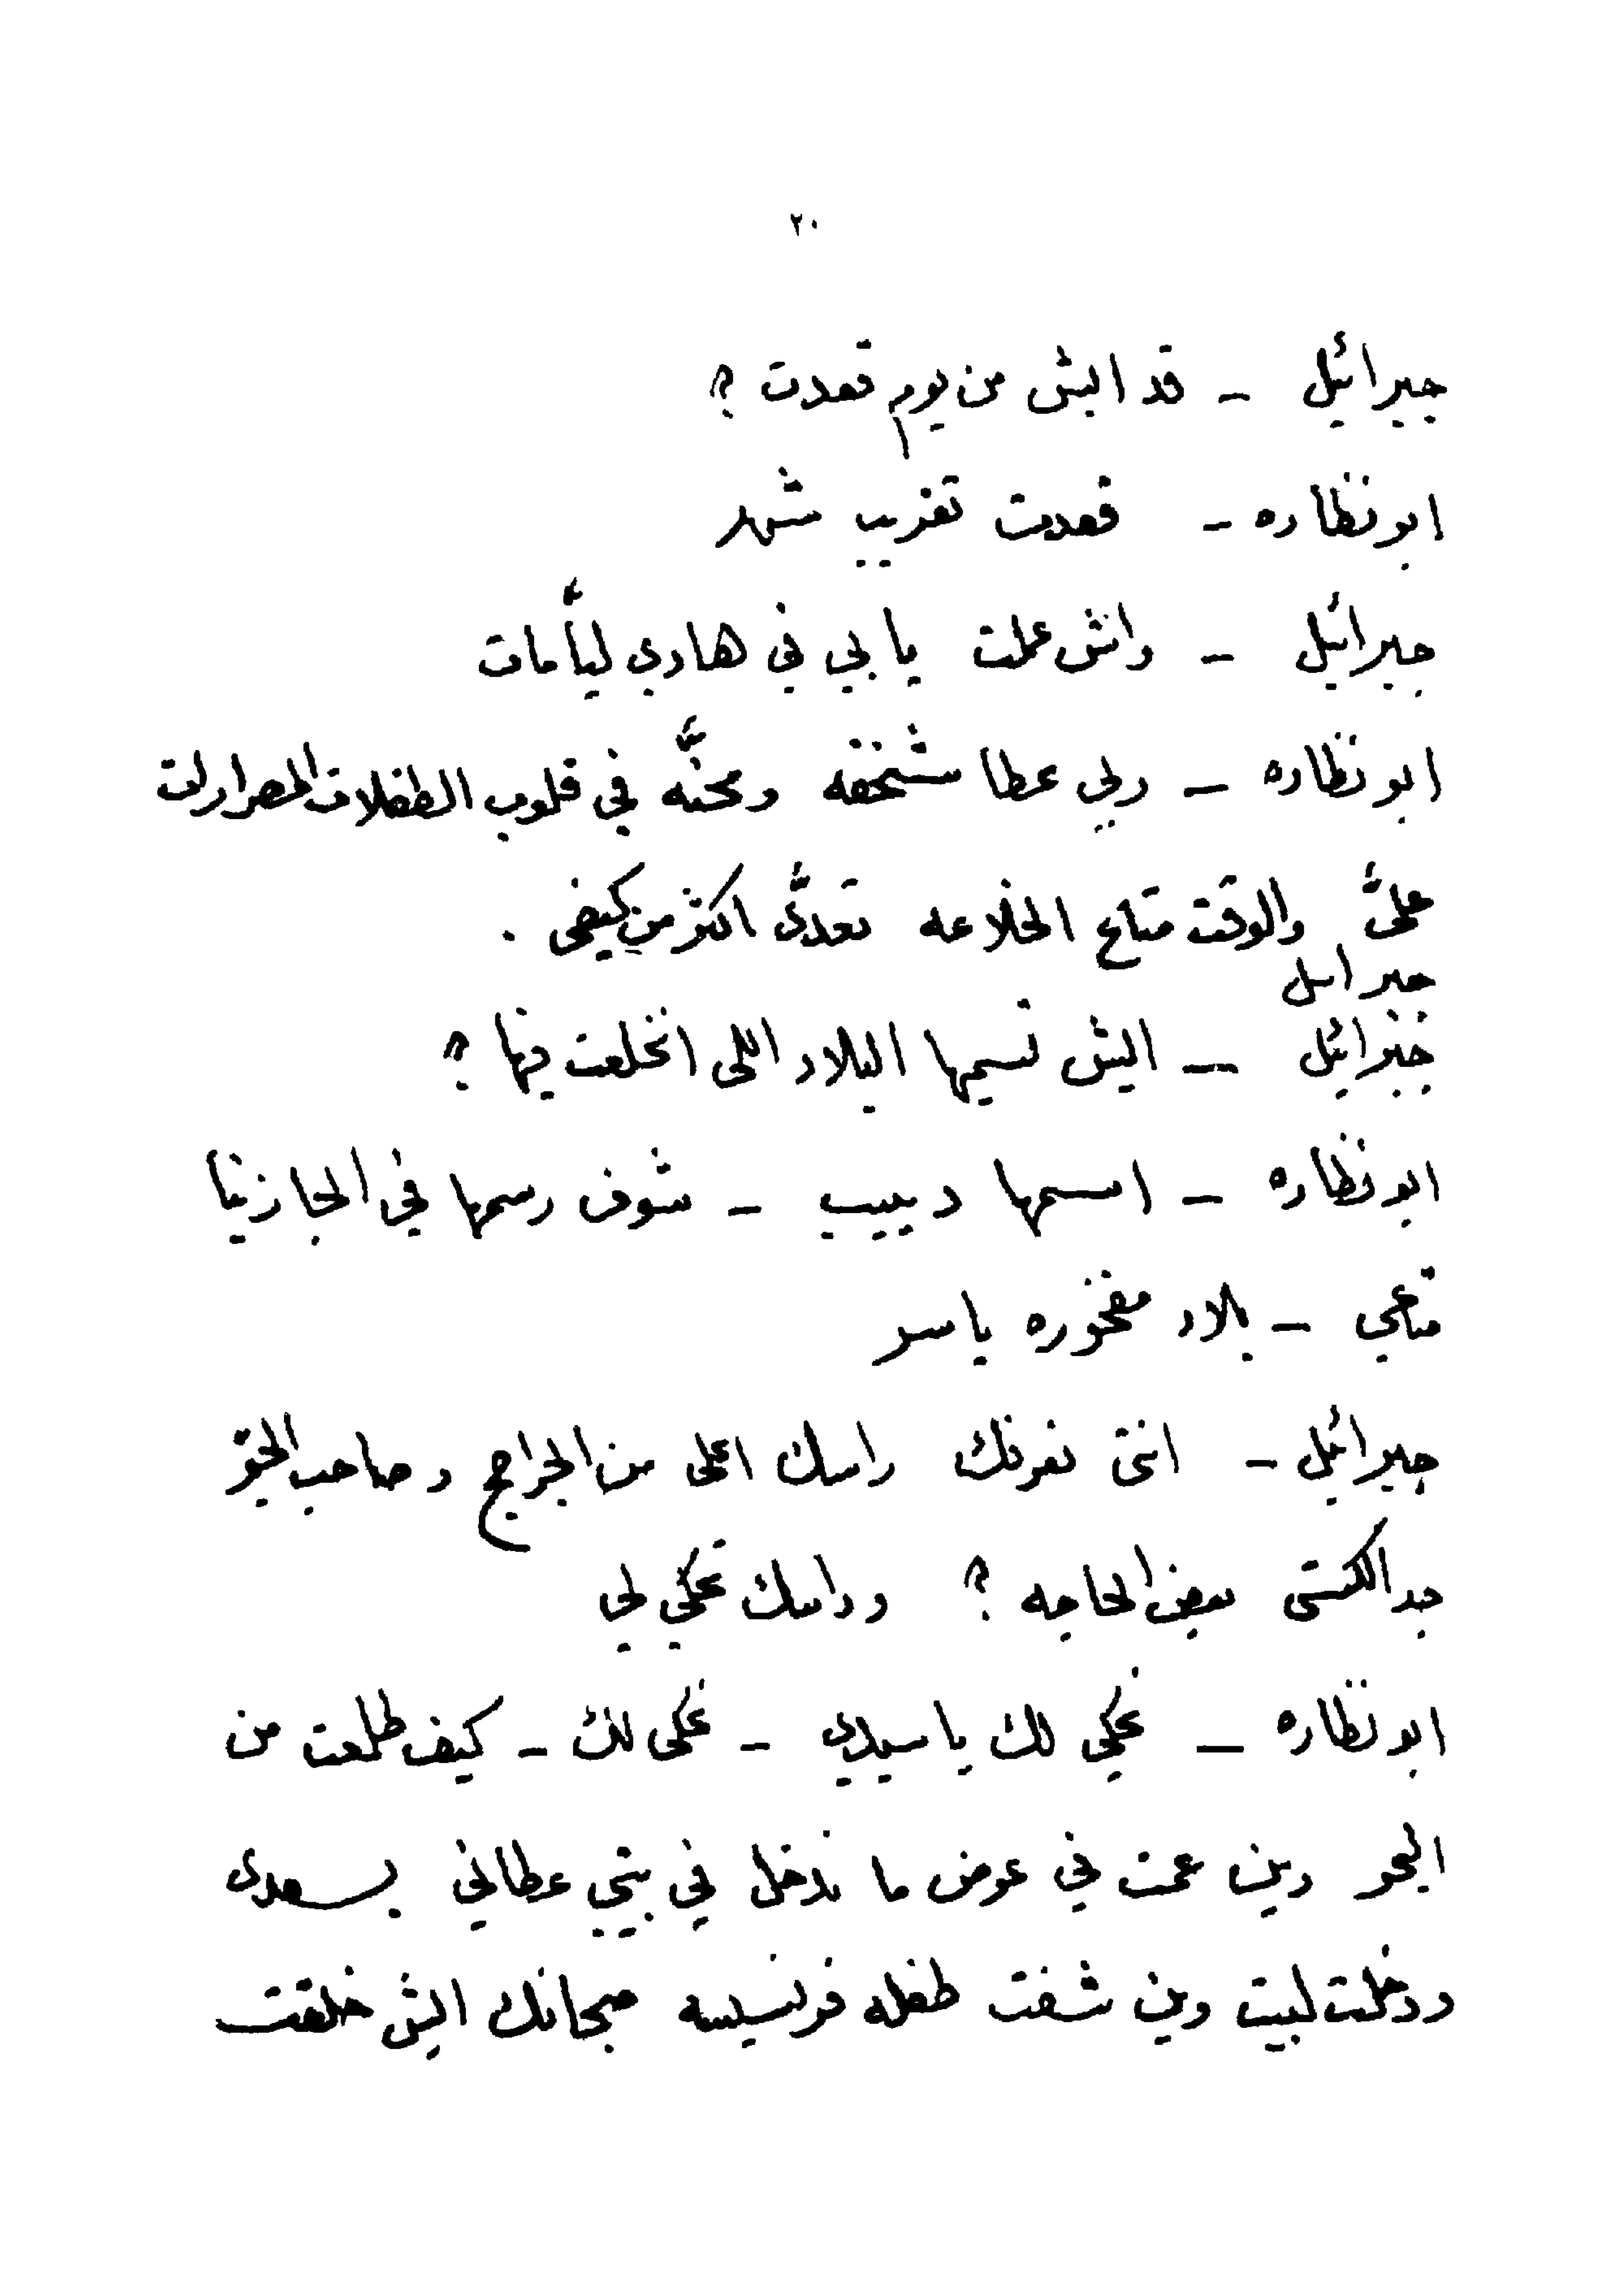 ٢٠
جبرائيل - قد ايش من يوم قعدت ؟
ابو نظاره - قعدت تقريب شهر
جبرائيل - واش عملت يا بي في هادي ليّأمات
ابو نظاره - ربي عطا شنخقه ومحنّه في قلوب الطفلات المصرارات
عليّ والوقت متاع الخلاعه تعدّى اكثر من كيفي .
جبرائيل
جبرائيل - ايش تسيمها البلاد اللى انخلعت فيها ؟
ابو نظاره - اسمها دييب - شوف رسمها في الجازيتا
متاعي - بلاد مفخوره ياسر
جبرائيل - انتى نعرفك راسك اعلى من الجراج وصاحب الحق
جد الكشتى بعض الحاجه ؟ وراسك تحكي لي
ابو نظاره - نحكي لك يا سيدي - نحكى لك - كيف طلعت من
البحر وين عمت في عوض ما ندخل في بيتي عطاني بسعدى
ودخلت لبيت وين شفت طفله فرنسيسه سبحانك ايش خلقت